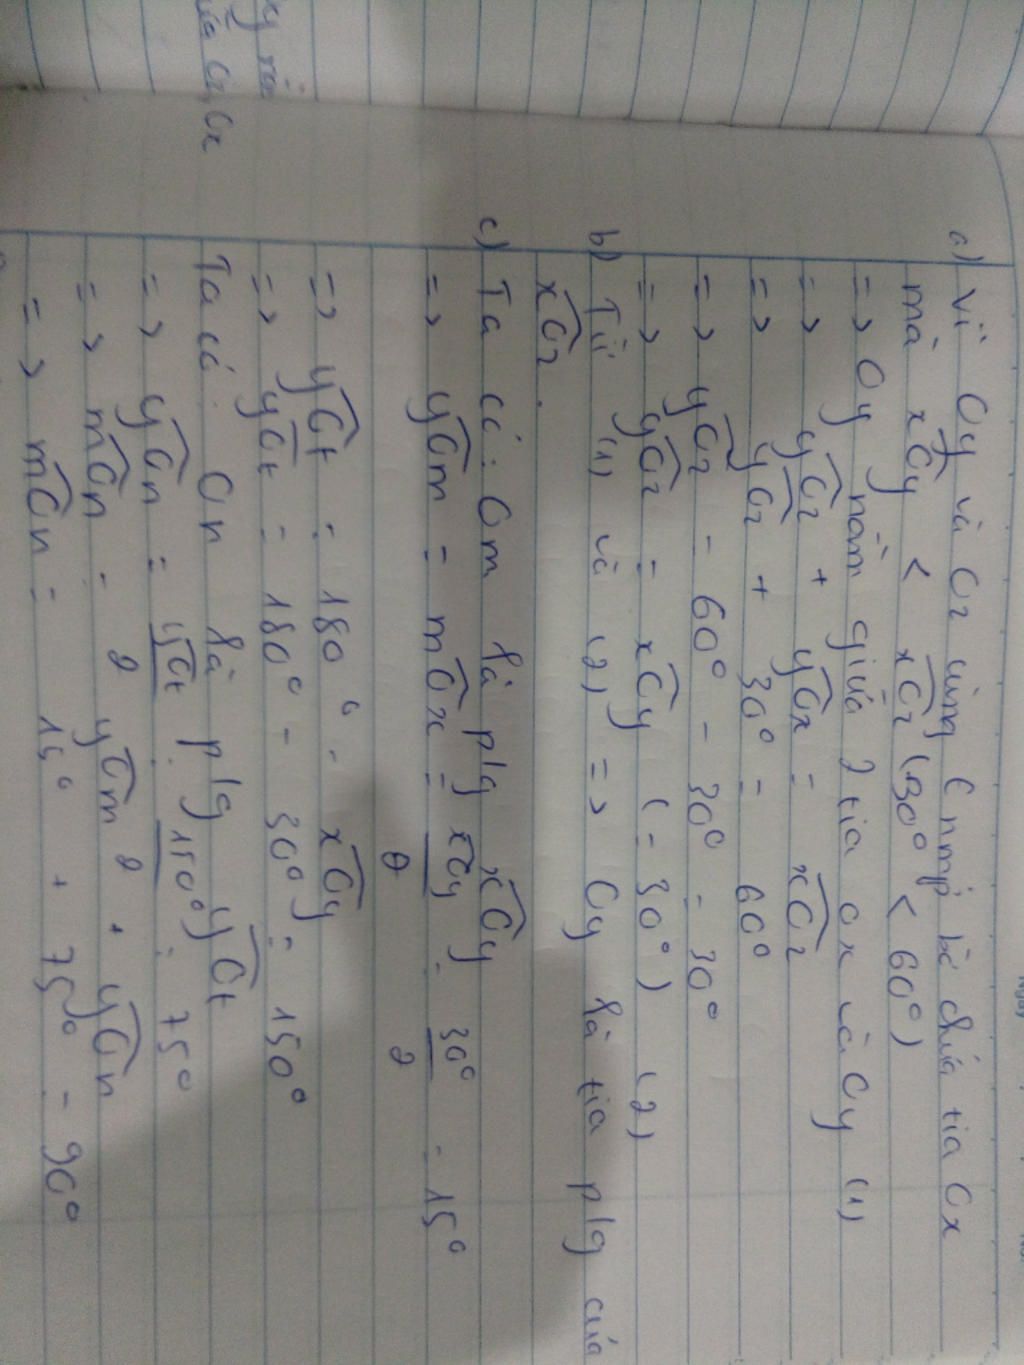 a) Vì Oy và Oz cùng € nmp bờ chứa tia Ox
mà xOy < xOz (30° < 60°)
=> Oy nằm giữa 2 tia Ox và Oy (1)
=> yOz + yOx = xOz
=> yOz + 30° = 60°
=> yOz = 60° - 30° = 30°
=> yOz = xOy (= 30°) (2)
b) Từ (1) và (2) => Oy là tia p/g của
xOz.
c) Ta có: Om là p/g xOy
=> yOm = mOx = xOy/2 = 30°/2 = 15°
=> yOt = 180° - xOy
=> yOt = 180° - 30° = 150°
Ta có: On là p/g yOt
=> yOn = yOt/2 = 150°/2 = 75°
=> mOn = yOm + yOn
=> mOn = 15° + 75° = 90°